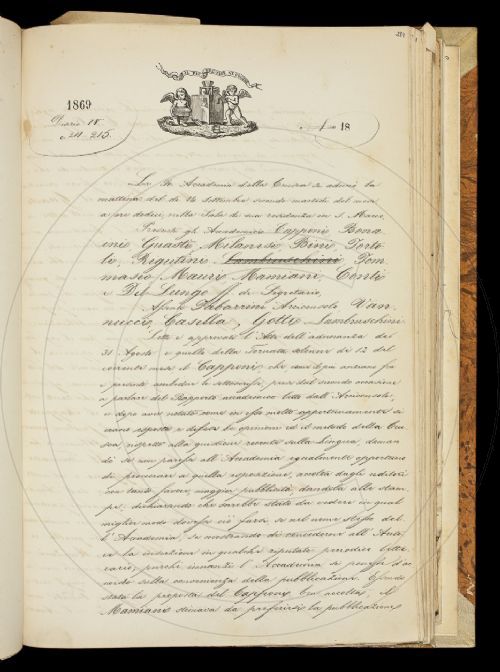 1869
Diario 18
c. 211. 215.
N. 18
La R. Accademia della Crusca si adunò la
mattina del dì 14 settembre secondo martedì del mese
a ore dodici, nella Sala di sua residenza in S. Marco.
Presenti gli Accademici Capponi Bona
ini Guasti, Milanesi Bini Torto
li, Rigutini Lambruschini Tom
masio Mauri Mamiani, Conti
e Del Lungo ff. di Segretario.
Assenti Tabarrini Arciconsolo Van
nucci, Casella, Gotti Lambruschini.
Letti e approvati l'Atto dell'adunanza dei
31 Agosto e quello della Tornata solenne di 12 del
corrente mese il Capponi che
e presiede
a parlare del Rapporto accademico letto dall'Arciconsolo,
e dopo aver notato come in esso molto opportunamente si
erano esposte e difese le opinioni ed il metodo della Cru
sca rispetto alla quistione recente sulla Lingua, doman
dò se non paresse all'Accademia egualmente opportuno
di procurare a quella esposizione, accolta dagli uditori
con tanto favore, maggior pubblicità, dandola alle stam
pe; dichiarando che sarebbe stato da vedere in qual
miglior modo dovesse ciò farsi se nel nome stesso del
l'Accademia, o mostrando di concederne all'Auto
re la inserzione in qualche reputato periodico lette
rario, purchè innanzi l'Accademia si ponesse d'ac
cordo sulla convenienza della pubblicazione. Essendo
stata la proposta del Capponi ben accolta, il
Mamiani stimava da preferirsi la pubblicazione